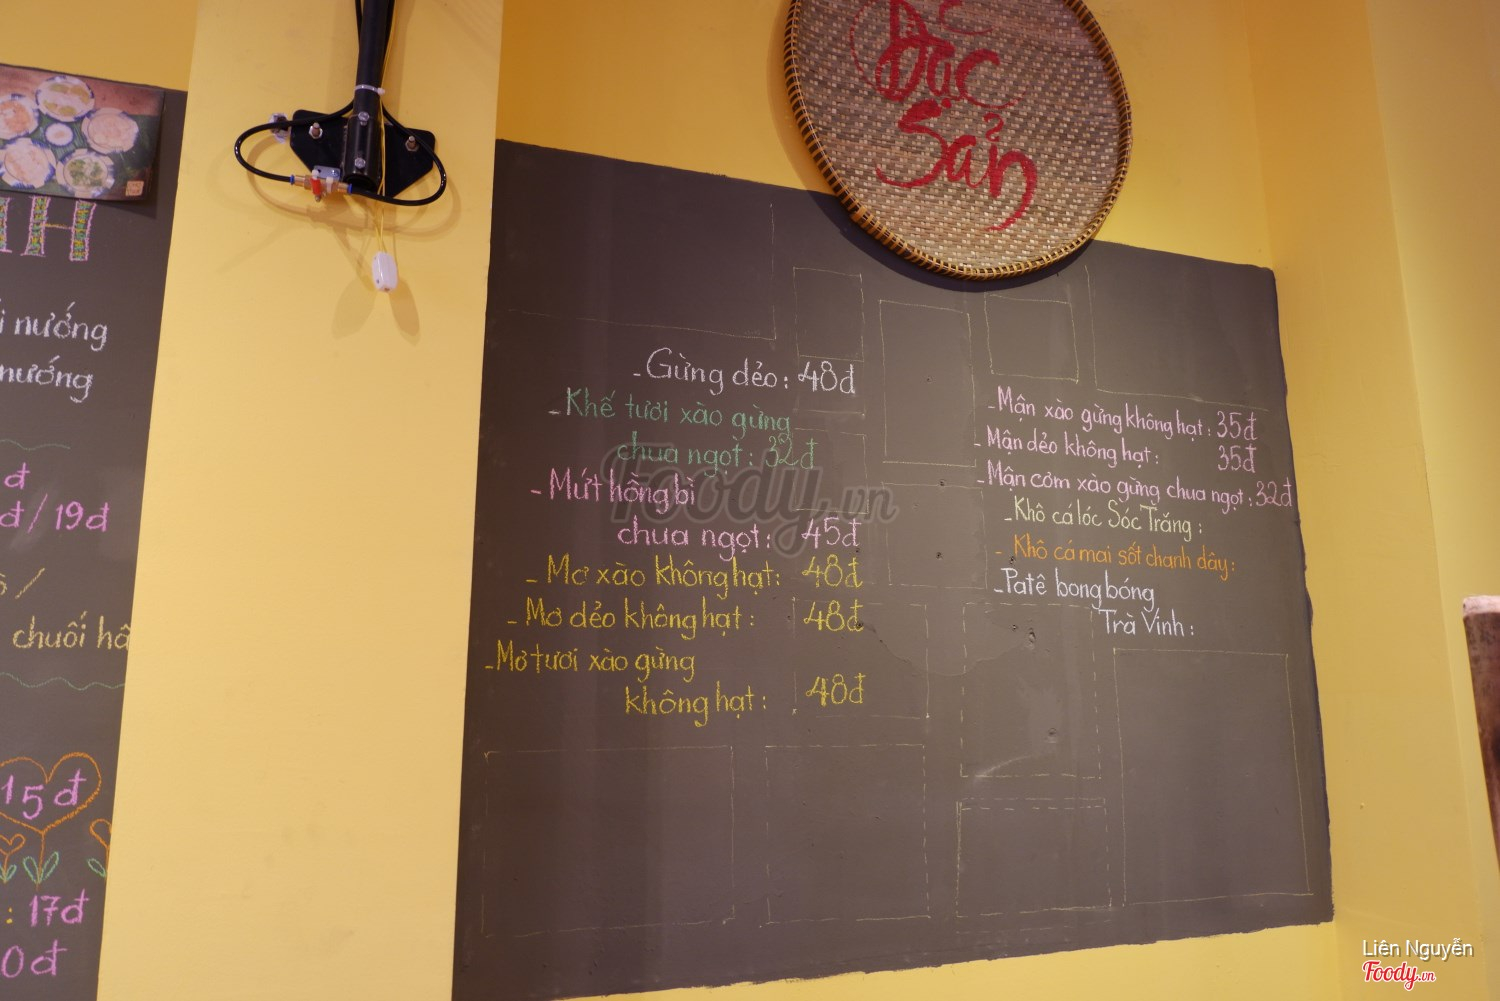 Đặc
Sản
H
nướng
nướng
đ
đ/19đ
chuối
15đ
: 17đ
0đ
- Gừng dẻo: 48đ
- Khế tươi xào gừng
chua ngọt: 32đ
- Mứt hồng bì
chua ngọt: 45đ
- Mơ xào không hạt: 48đ
- Mơ dẻo không hạt: 48đ
- Mơ tươi xào gừng
không hạt: 48đ
- Mận xào gừng không hạt: 35đ
- Mận dẻo không hạt: 35đ
- Mận cơm xào gừng chua ngọt: 32đ
- Khô cá lóc Sóc Trăng:
- Khô cá mai sốt chanh dây:
- Patê bong bóng
Trà Vinh:
Foody.vn
Liên Nguyễn
Foody.vn